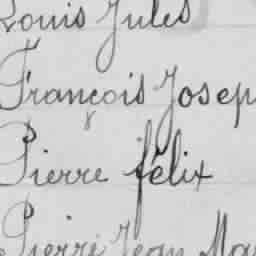 Louis Jules
François Josep
Pierre félix
Pierre Jean Ma